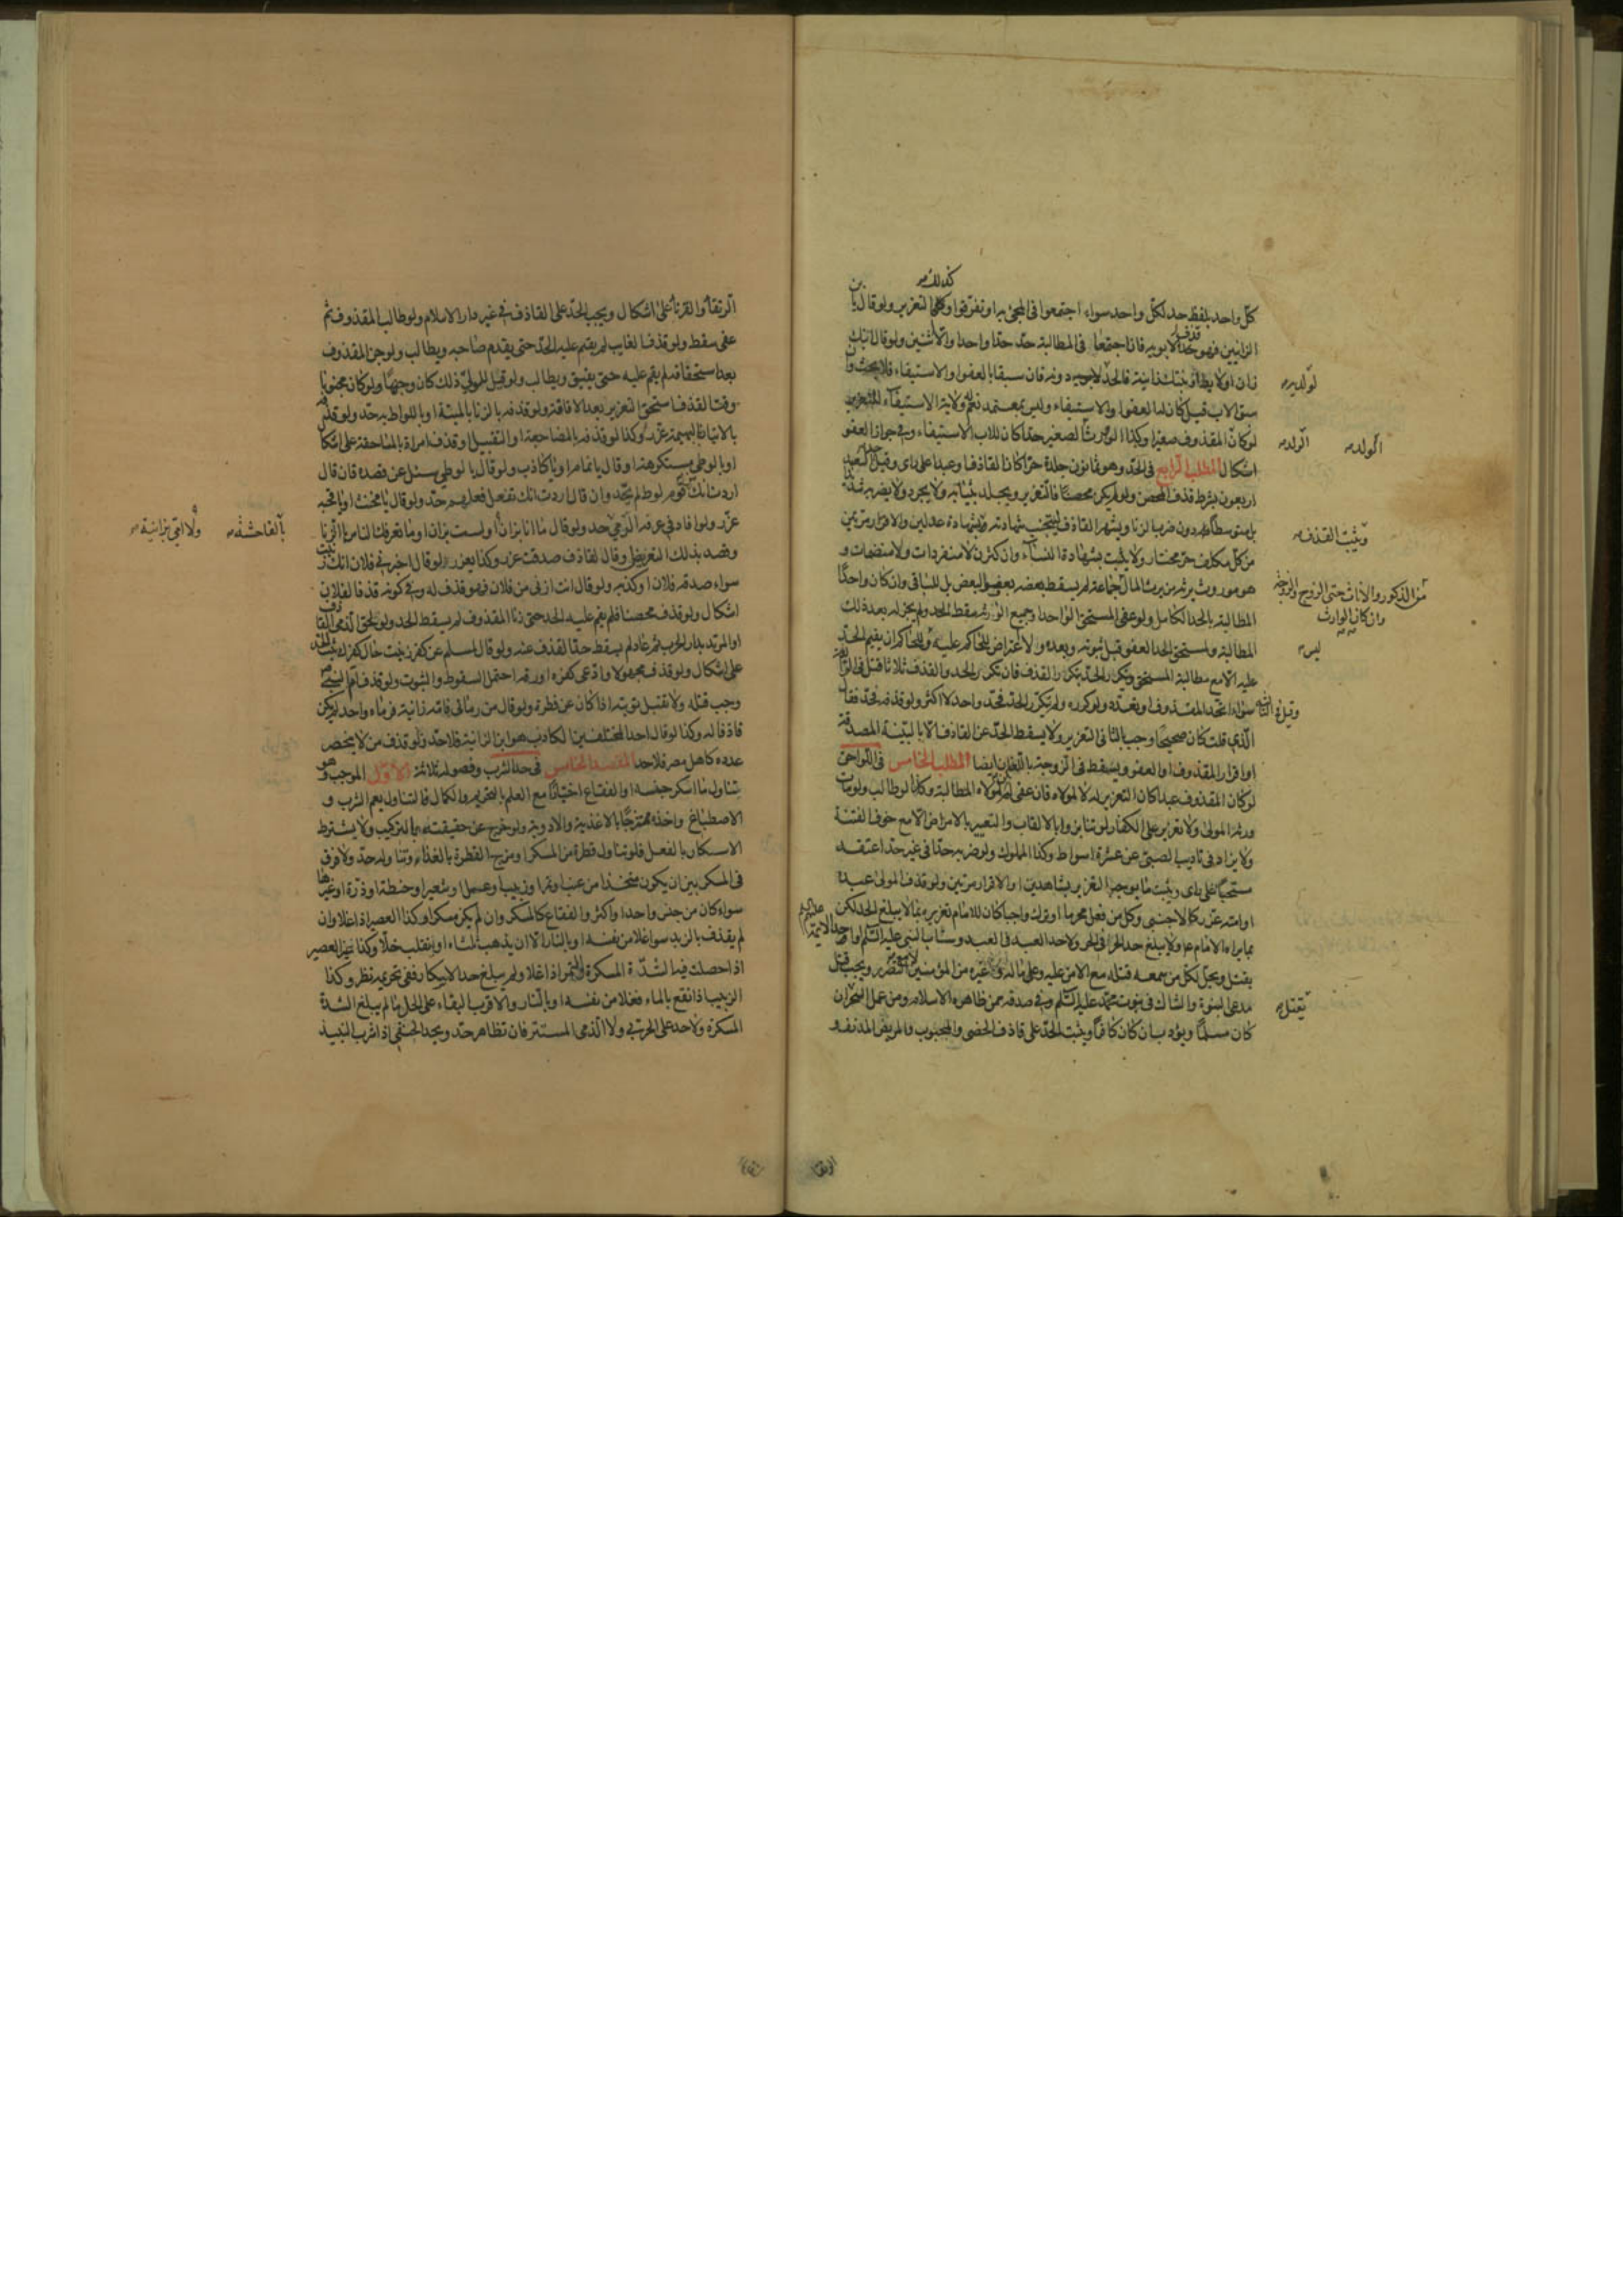 كذلك
كلّ واحد بلفظ حد لكلّ واحد سواء اجتمعوا في المجئ به او تفرقوا وكذا التعزير ولو قال يا بن
الزانيين فهو قذف لابويه فان اجتمعا في المطالبة حدّ حدّا واحدا والا اثنين ولو قال ابنك
زان او لايط او بنتك زانية فالحدّ دونه فان سبقا بالعفو او الاستيفاء فلا بحث وان
سبق الاب قيل كان له العفو والاستيفاء وليس بمعتمد نعم له ولاية الاستيفاء للتعزير
لو كان المقذوف صغيرا وكذا لو ورث الصغير حدّا كان للاب الاستيفاء وفي جواز العفو
اشكال المطلب الرابع في الحدّ وهو ثمانون جلدة حرّا كان القاذف او عبدا على راى وقيل حد العبد
اربعون بشرط قذف المحصن ولو لم يكن محصنا فالتعزير ويجلد بثيابه ولا يجرد ولا يضرب شديدا
بل متوسطا دون ضرب الزنا ويشهر القاذف لتجتنب شهادته بشهادة عدلين والاقرار مرتين
من كلّ مكلف حرّ مختار ولا يثبت بشهادة النساء وان كثرن لا منفردات ولا منضمات و
هو موروث يرثه من يرث المال جماعة لم يسقط بعضه بعفو البعض بل للباقى وان كان واحدا
المطالبة بالحد الكامل ولو عفى المستحق الواحد او جميع الورثة سقط الحد ولم يجز له بعد ذلك
المطالبة ولمستحق الحد العفو قبل ثبوته وبعده ولا اعتراض للحاكم عليه وللحاكم ان يقيم الحدّ
عليه الا مع مطالبة المستحق ويتكرر الحدّ بتكرر القذف فان تكرر الحد والقذف ثلاثا قتل في الرابعة
سواء اتحد المقذوف او تعدد ولو كرره ولم يتكرر الحدّ فحدّ واحد لا اكثر ولو قذفه فحدّ فقال
الّذى قلت كان صحيحا وجب بالثانى التعزير ولا يسقط الحدّ عن القاذف الا بالبيّنة المصدقة
او اقرار المقذوف او العفو ويسقط في الزوجة باللعان ايضا المطلب الخامس في اللواحق
لو كان المقذوف عبدا كان التعزير له لا لمولاه فان عفى لم يكن لمولاه المطالبة وكذا لو طالب ولو مات
ورثه المولى ولا تعزير على الكفار لو تنابزوا بالالقاب والتعيير بالامراض الا مع خوف الفتنة
ولا يزاد في تاديب الصبيّ عن عشرة اسواط وكذا المملوك ولو ضربه حدّا في غير حدّ اعتقه
مستحبّا على راى ويثبت ما يوجب التعزير بشاهدين او الاقرار مرتين ولو قذف المولى عبده
او امته عزّر كالاجنبى وكل من فعل محرما او ترك واجبا كان للامام تعزيره بما لا يبلغ الحد لكن
بما يراه الامام ع ولا يبلغ حد الحر في الحر ولا حد العبد في العبد وسابّ النبى عليه السّلم او احد الائمة عليهم السلام
يقتل ويحلّ لكلّ من سمعه قتله مع الامن عليه وعلى ماله وغيره من المؤمنين لا مع الضرر ويجب قتل
مدعى النبوة والشاك في نبوت محمّد عليه السّلم وفي صدقه ممن ظاهره الاسلام ومن عمل السحر ان
كان مسلما ويؤدب ان كان كافرا ويثبت الحدّ على قاذف الخصى والمجبوب والمريض المدنف و
لوالديه
الولد
الولد
ويثبت القذف
من الذكور والاناث حتى الزوج والزوجة
وان كان الوارث
ليس
وقيل في الثالثة
يقتل
الرتقا
الرتقا والقرنا على اشكال ويجب الحدّ على القاذف في غير دار الاسلام ولو طالب المقذوف ثم
عفى سقط ولو قذف الغايب لم يقم عليه الحدّ حتى يقدم صاحبه ويطالب ولو جن المقذوف
بعد استحقاقه لم يقم عليه حتى يفيق ويطالب ولو قيل للولىّ ذلك كان وجها ولو كان مجنونا
وقت القذف استحق التعزير بعد الافاقة ولو قذفه بالزنا بالميتة او باللواط به حدّ ولو قذفه
بالاتيان للبهيمة عزّر وكذا لو قذفه بالمضاجعة او التقبيل او قذف امراة بالمساحقة على اشكال
او بالوطى مستكرهة او قال يا نمام او يا كاذب ولو قال يا لوطى سئل عن قصده فان قال
اردت انك من قوم لوط لم يحّد وان قال اردت انك تفعل فعلهم حدّ ولو قال يا مخنث او يا قحبه
عزّر ولو افاد في عرفه الرّمى حد ولو قال ما انا بزان او لست بزان او ما تعرفك الناس بالزنا
وقصد بذلك التعريض وقال القاذف صدقت عزر وكذا يعزر لو قال اخبرنى فلان انك زنيت
سواء صدقه فلان او كذبه ولو قال انت ازنى من فلان فهو قذف له وفي كونه قذفا لفلان
اشكال ولو قذف محصنا فلم يقم عليه الحد حتى زنا المقذوف لم يسقط الحد ولو لحق الذمى القاذف
او المرتد بدار الحرب ثم عاد لم يسقط حدّ القذف عنه ولو قال لمسلم عن كفر زنيت حال كفرك ثبت الحد
على اشكال ولو قذف مجهولا وادّعى كفره او رقه احتمل السقوط والثبوت ولو قذف امّ النبى ص
وجب قتله ولا تقبل توبته اذا كان عن فطرة ولو قال من رمانى فامه زانية فرماه واحد لم يكن
قاذفا له وكذا لو قال احد المختلفين الكاذب هو ابن الزانية فلا حدّ ولو قذف من لا ينحصر
عدده كاهل مصر فلا حد المقصد الخامس في حد الشرب وفصوله ثلاثة الاوّل الموجب وهو
تناول ما اسكر جنسه او الفقاع اختيارا مع العلم بالتحريم والكمال فالتناول يعم الشرب و
الاصطباغ واخذه ممتزجا بالاغذية والادوية ولو خرج عن حقيقته بالتركيب ولا يشترط
الاسكار بالفعل فلو تناول قطرة من المسكر او مزج القطرة بالغذاء وتناوله حدّ ولا فرق
في المسكر بين ان يكون متخذا من عنب او تمر او زبيب او عسل او شعير او حنطة او ذرة او غيرها
سواء كان من جنس واحد او اكثر والفقاع كالمسكر وان لم يكن مسكرا وكذا العصير اذا غلا وان
لم يقذف بالزبد سوا غلا من نفسه او بالنار الا ان يذهب ثلثاه او ينقلب خلّا وكذا غير العصير
اذا حصلت فيه الشدّة المسكرة والتمر اذا غلا ولم يبلغ حد الاسكار ففى تحريمه نظر وكذا
الزبيب اذا نقع بالماء فغلا من نفسه او بالنار والاقرب البقاء على الحل ما لم يبلغ الشدة
المسكرة ولا حد على الحربى ولا الذمى المستتر فان تظاهر حدّ ويحد الحنفى اذا شرب النبيذ
بالفاحشة
ولا امى بزانية